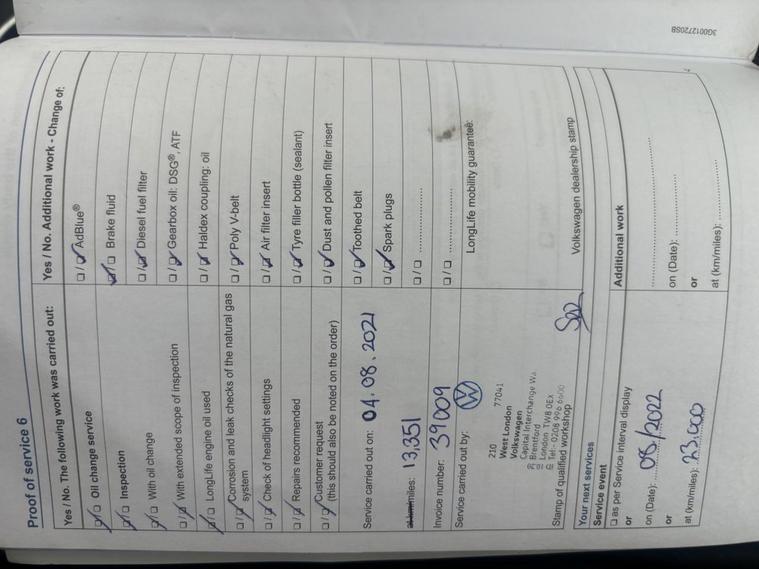 Proof of service 6
Yes / No. The following work was carried out:
Oil change service
Inspection
With oil change
With extended scope of inspection
LongLife engine oil used
Corrosion and leak checks of the natural gas
system
Check of headlight settings
Repairs recommended
Customer request
(this should also be noted on the order)
Service carried out on: 04.08.2021
miles: 13,351
Invoice number: 39009
Service carried out by:
210 77041
West London
Volkswagen
Capital Interchange Way
Brentford
London TW8 0EX
Tel:- 0208 996 6600
Stamp of qualified workshop
Yes / No. Additional work - Change of:
AdBlue®
Brake fluid
Diesel fuel filter
Gearbox oil: DSG®, ATF
Haldex coupling: oil
Poly V-belt
Air filter insert
Tyre filler bottle (sealant)
Dust and pollen filter insert
Toothed belt
Spark plugs
LongLife mobility guarantee:
Volkswagen dealership stamp
Your next services
Service event
as per Service interval display
or
on (Date): 08/2022
or
at (km/miles): 23,000
Additional work
on (Date):
or
at (km/miles):
3G0012720SB